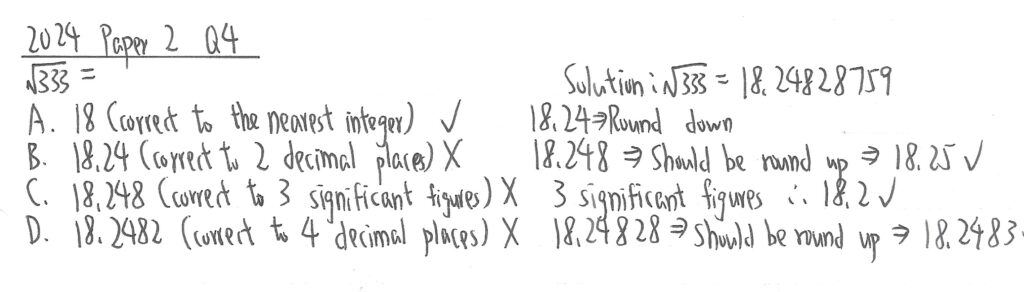 2024 Paper 2 Q4
√333 =
Solution : √333 = 18.24828759
A. 18 (correct to the nearest integer) ✓ 18.24 ⇒ Round down
B. 18.24 (correct to 2 decimal places) X 18.248 ⇒ Should be round up ⇒ 18.25 ✓
C. 18.248 (correct to 3 significant figures) X 3 significant figures ∴ 18.2 ✓
D. 18.2482 (correct to 4 decimal places) X 18.24828 ⇒ Should be round up ⇒ 18.2483.